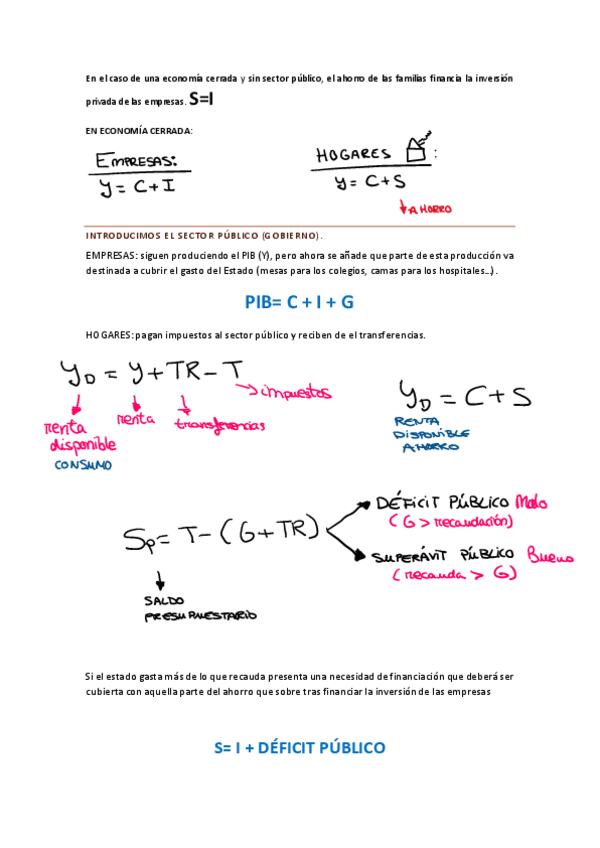 En el caso de una economía cerrada y sin sector público, el ahorro de las familias financia la inversión
privada de las empresas. S=I
EN ECONOMÍA CERRADA:
EMPRESAS:
Y = C + I
HOGARES :
Y = C + S
AHORRO
INTRODUCIMOS EL SECTOR PÚBLICO (GOBIERNO).
EMPRESAS: siguen produciendo el PIB (Y), pero ahora se añade que parte de esta producción va
destinada a cubrir el gasto del Estado (mesas para los colegios, camas para los hospitales...).
PIB= C + I + G
HOGARES: pagan impuestos al sector público y reciben de el transferencias.
YD = Y + TR - T
impuestos
renta disponible
renta
transferencias
CONSUMO
YD = C + S
RENTA
DISPONIBLE
AHORRO
Sp = T - (G + TR)
DÉFICIT PÚBLICO Malo
(G > recaudación)
SUPERÁVIT PÚBLICO Bueno
(recauda > G)
SALDO
PRESUPUESTARIO
Si el estado gasta más de lo que recauda presenta una necesidad de financiación que deberá ser
cubierta con aquella parte del ahorro que sobre tras financiar la inversión de las empresas
S= I + DÉFICIT PÚBLICO